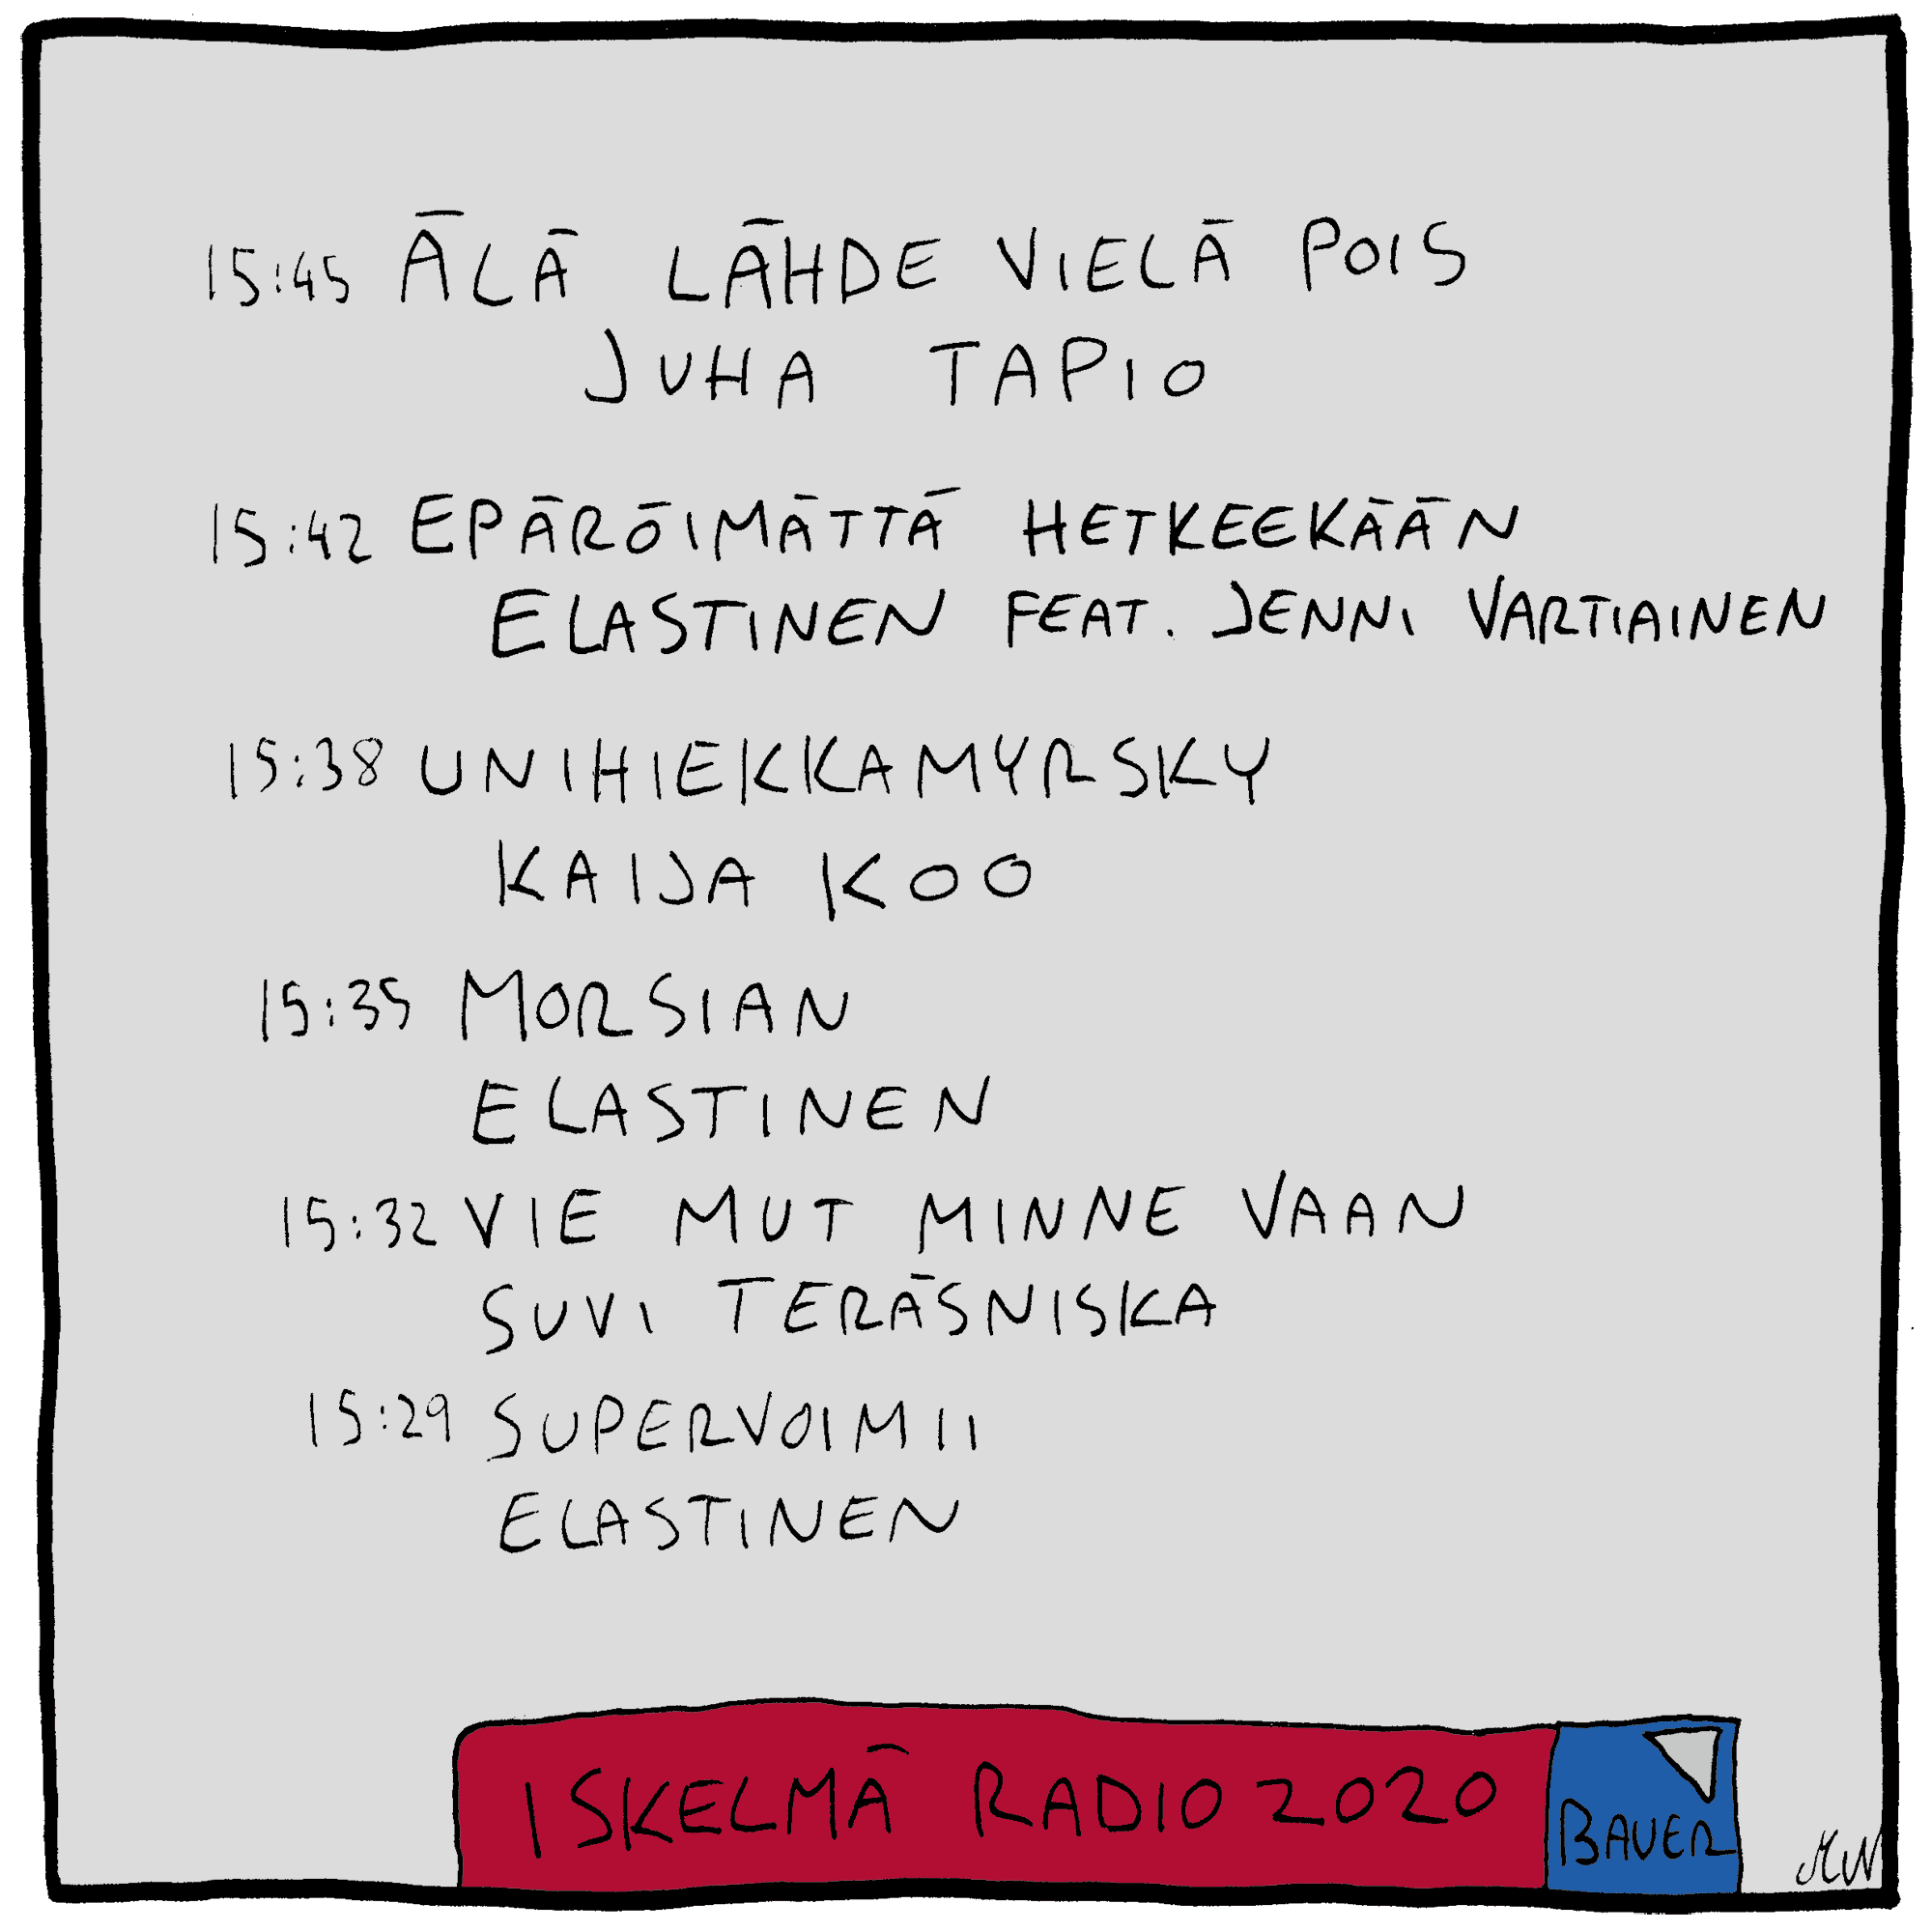 15:45 ÄLÄ LÄHDE VIELÄ POIS
JUHA TAPIO
15:42 EPÄRÖIMÄTTÄ HETKEEKÄÄN
ELASTINEN FEAT. JENNI VARTIAINEN
15:38 UNIHIEKKAMYRSKY
KAIJA KOO
15:35 MORSIAN
ELASTINEN
15:32 VIE MUT MINNE VAAN
SUVI TERÄSNISKA
15:29 SUPERVOIMII
ELASTINEN
ISKELMÄ RADIO 2020
BAUER
MW